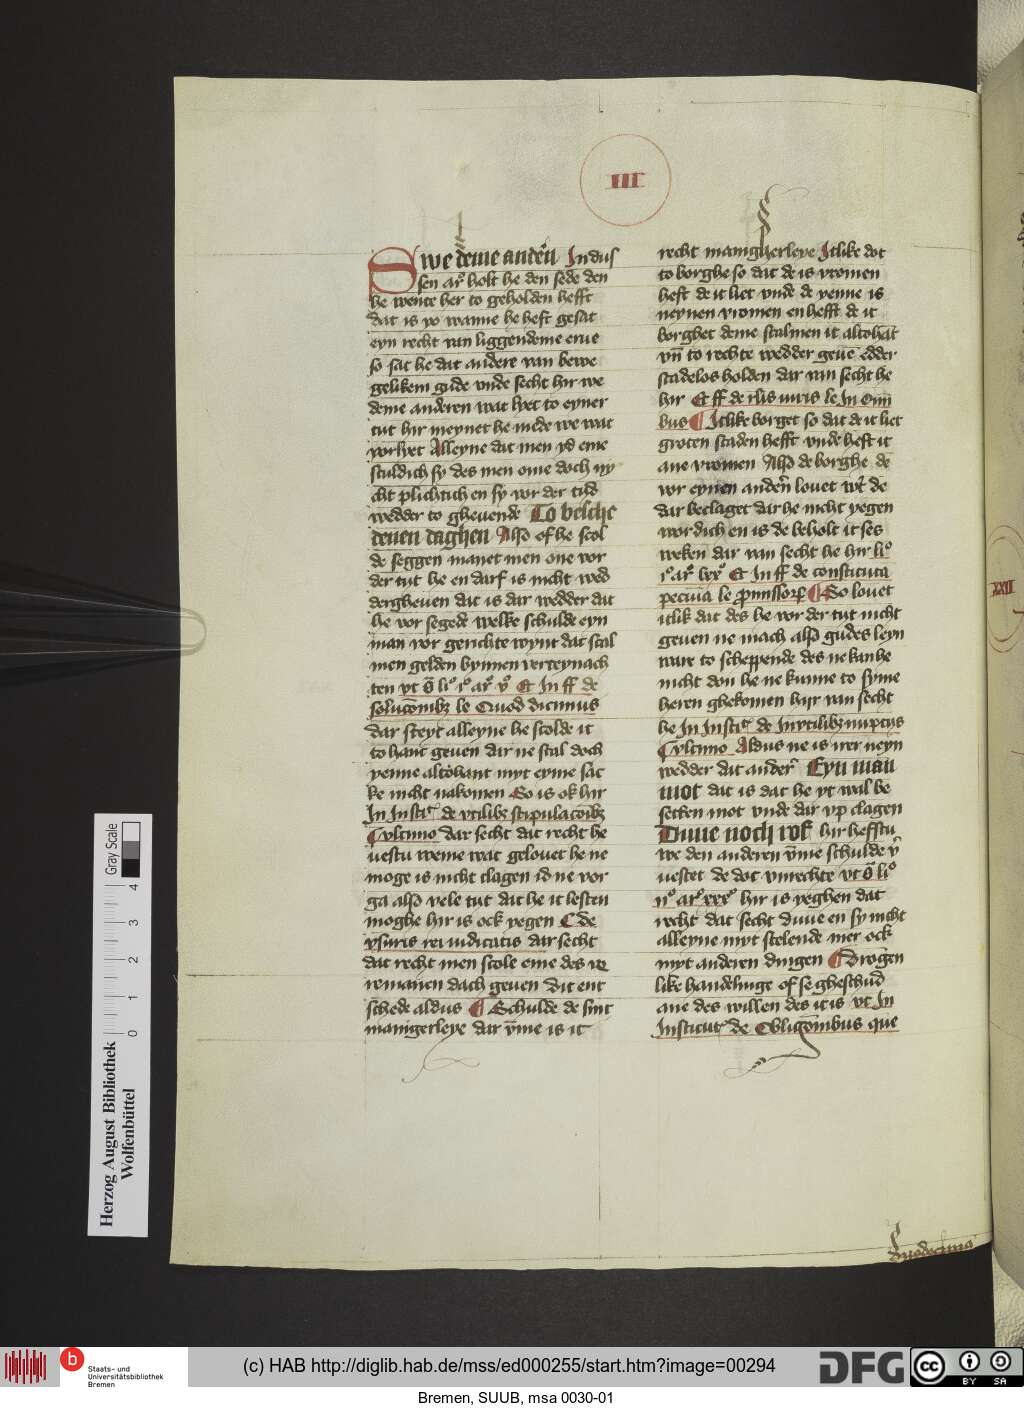 III
Swe deme anderñ Jn dus
sen ar holt he den sede den
he wente her to geholden hefft
dat is yo wanne he heft gesat
eyn recht van liggendeme erue
so sat he dat andere van bewe
gelikem gude vnde secht hir we
deme anderen wat lyet to eyner
tut hir meynet he mede we wat
vorlyet Alleyne dat men yd eme
sculdich sy des men ome doch ny
cht plichtich en sy vor der tijd
wedder to gheuende To welche
deuen daghen Also of he scol
de seggen manet men one vor
der tut he en darf is nicht wed
dergheuen dat is dar wedder dat
he vor segede welke schulde eyn
man vor gerichte wynt dat scal
men gelden bynnen verteynach
ten vt o li i ar v Et Jn ff de
solucionibz le Quod dicimus
dar steyt alleyne he scolde it
to hant geuen dar ne scal doch
yenne altohant myt eyme sac
ke nicht nakomen So is ok hir
Jn Instit de vtilibz stipulacoibz
dar secht dat recht he
uestu weme wat gelouet he ne
moge is nicht clagen id ne vor
ga also vele tut dat he it lesten
moghe hir is ock yegen C de
vsuris rei iudicatis dar secht
dat recht men scole eme des
romanen dach geuen Dit ent
schede aldus ¶ Schulde de sint
mannigerleye dar vme is it
recht mannigherleye Jtlike dot
to borghe so dat de is vromen
heft de it liet vnde de yenne is
neynen vromen en hefft de it
borghet deme stalmen it altohat
vñ to rechte wedder geue edder
scadelos holden dar van secht he
hir Et ff de
bus ¶ Jtlike borget so dat de it liet
groten scaden hefft vnde heft it
ane vromen Also de borghe de
vor eynen anderñ louet wt de
dar beclaget dar he nicht yegen
wordich en is de beholt it ses
weken dar van secht he hir li
i ar lxv Et Jn ff de constituta
pecunia le promissor ¶ So louet
itlik dat des he vor der tut nicht
geuen ne mach also gudes leyn
ware to scheppende des ne kan he
nicht don he ne kunne to syme
heren ghekomen hijr van secht
he Jn Instit de Jnvtilibz nuptijs
Aldus ne is irer neyn
wedder dat ander Eyn man
mot dat is dat he yt wal be
setten mot vnde dar vp clagen
Duue noch rof hir hefftu
we den anderen vme schulde v
uestet de dot vnrechte vt o li
ii ar xxx hir is yeghen dat
recht dat secht duue en sy nicht
alleyne myt stelende mer ock
myt anderen dingen ¶ Drogen
like handelinge of se gheschud
ane des willen des it is vt Jn
Institut de Obligoibus que
duodecima
XXII
Gray Scale
0 1 2 3 4
Herzog August Bibliothek
Wolfenbüttel
b
Staats- und
Universitätsbibliothek
Bremen
(c) HAB http://diglib.hab.de/mss/ed000255/start.htm?image=00294
DFG
cc
BY SA
Bremen, SUUB, msa 0030-01